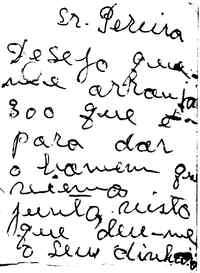 Sr. Pereira
Desejo que
me arranja
300 que é
para dar
o homem que
viemos
junto, visto
que deu-me
o seu dinhei